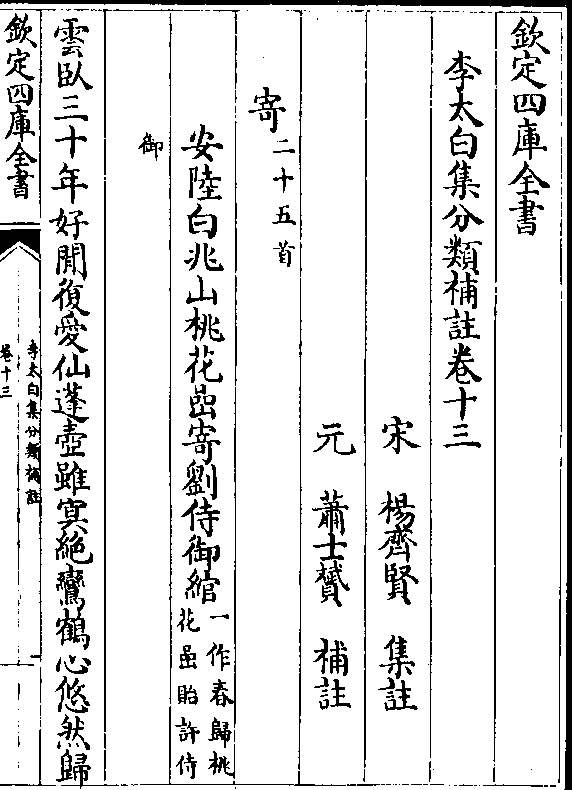 欽定四庫全書
李太白集分類補註卷十三
宋 楊齊賢 集註
元 蕭士贇 補註
寄二十五首
安陸白兆山桃花嵒寄劉侍御綰一作春歸桃花嵒貽許侍
御
雲臥三十年好閒復愛仙蓬壺雖㝠絶鸞鶴心悠然歸
欽定四庫全書
李太白集分類補註
卷十三
一